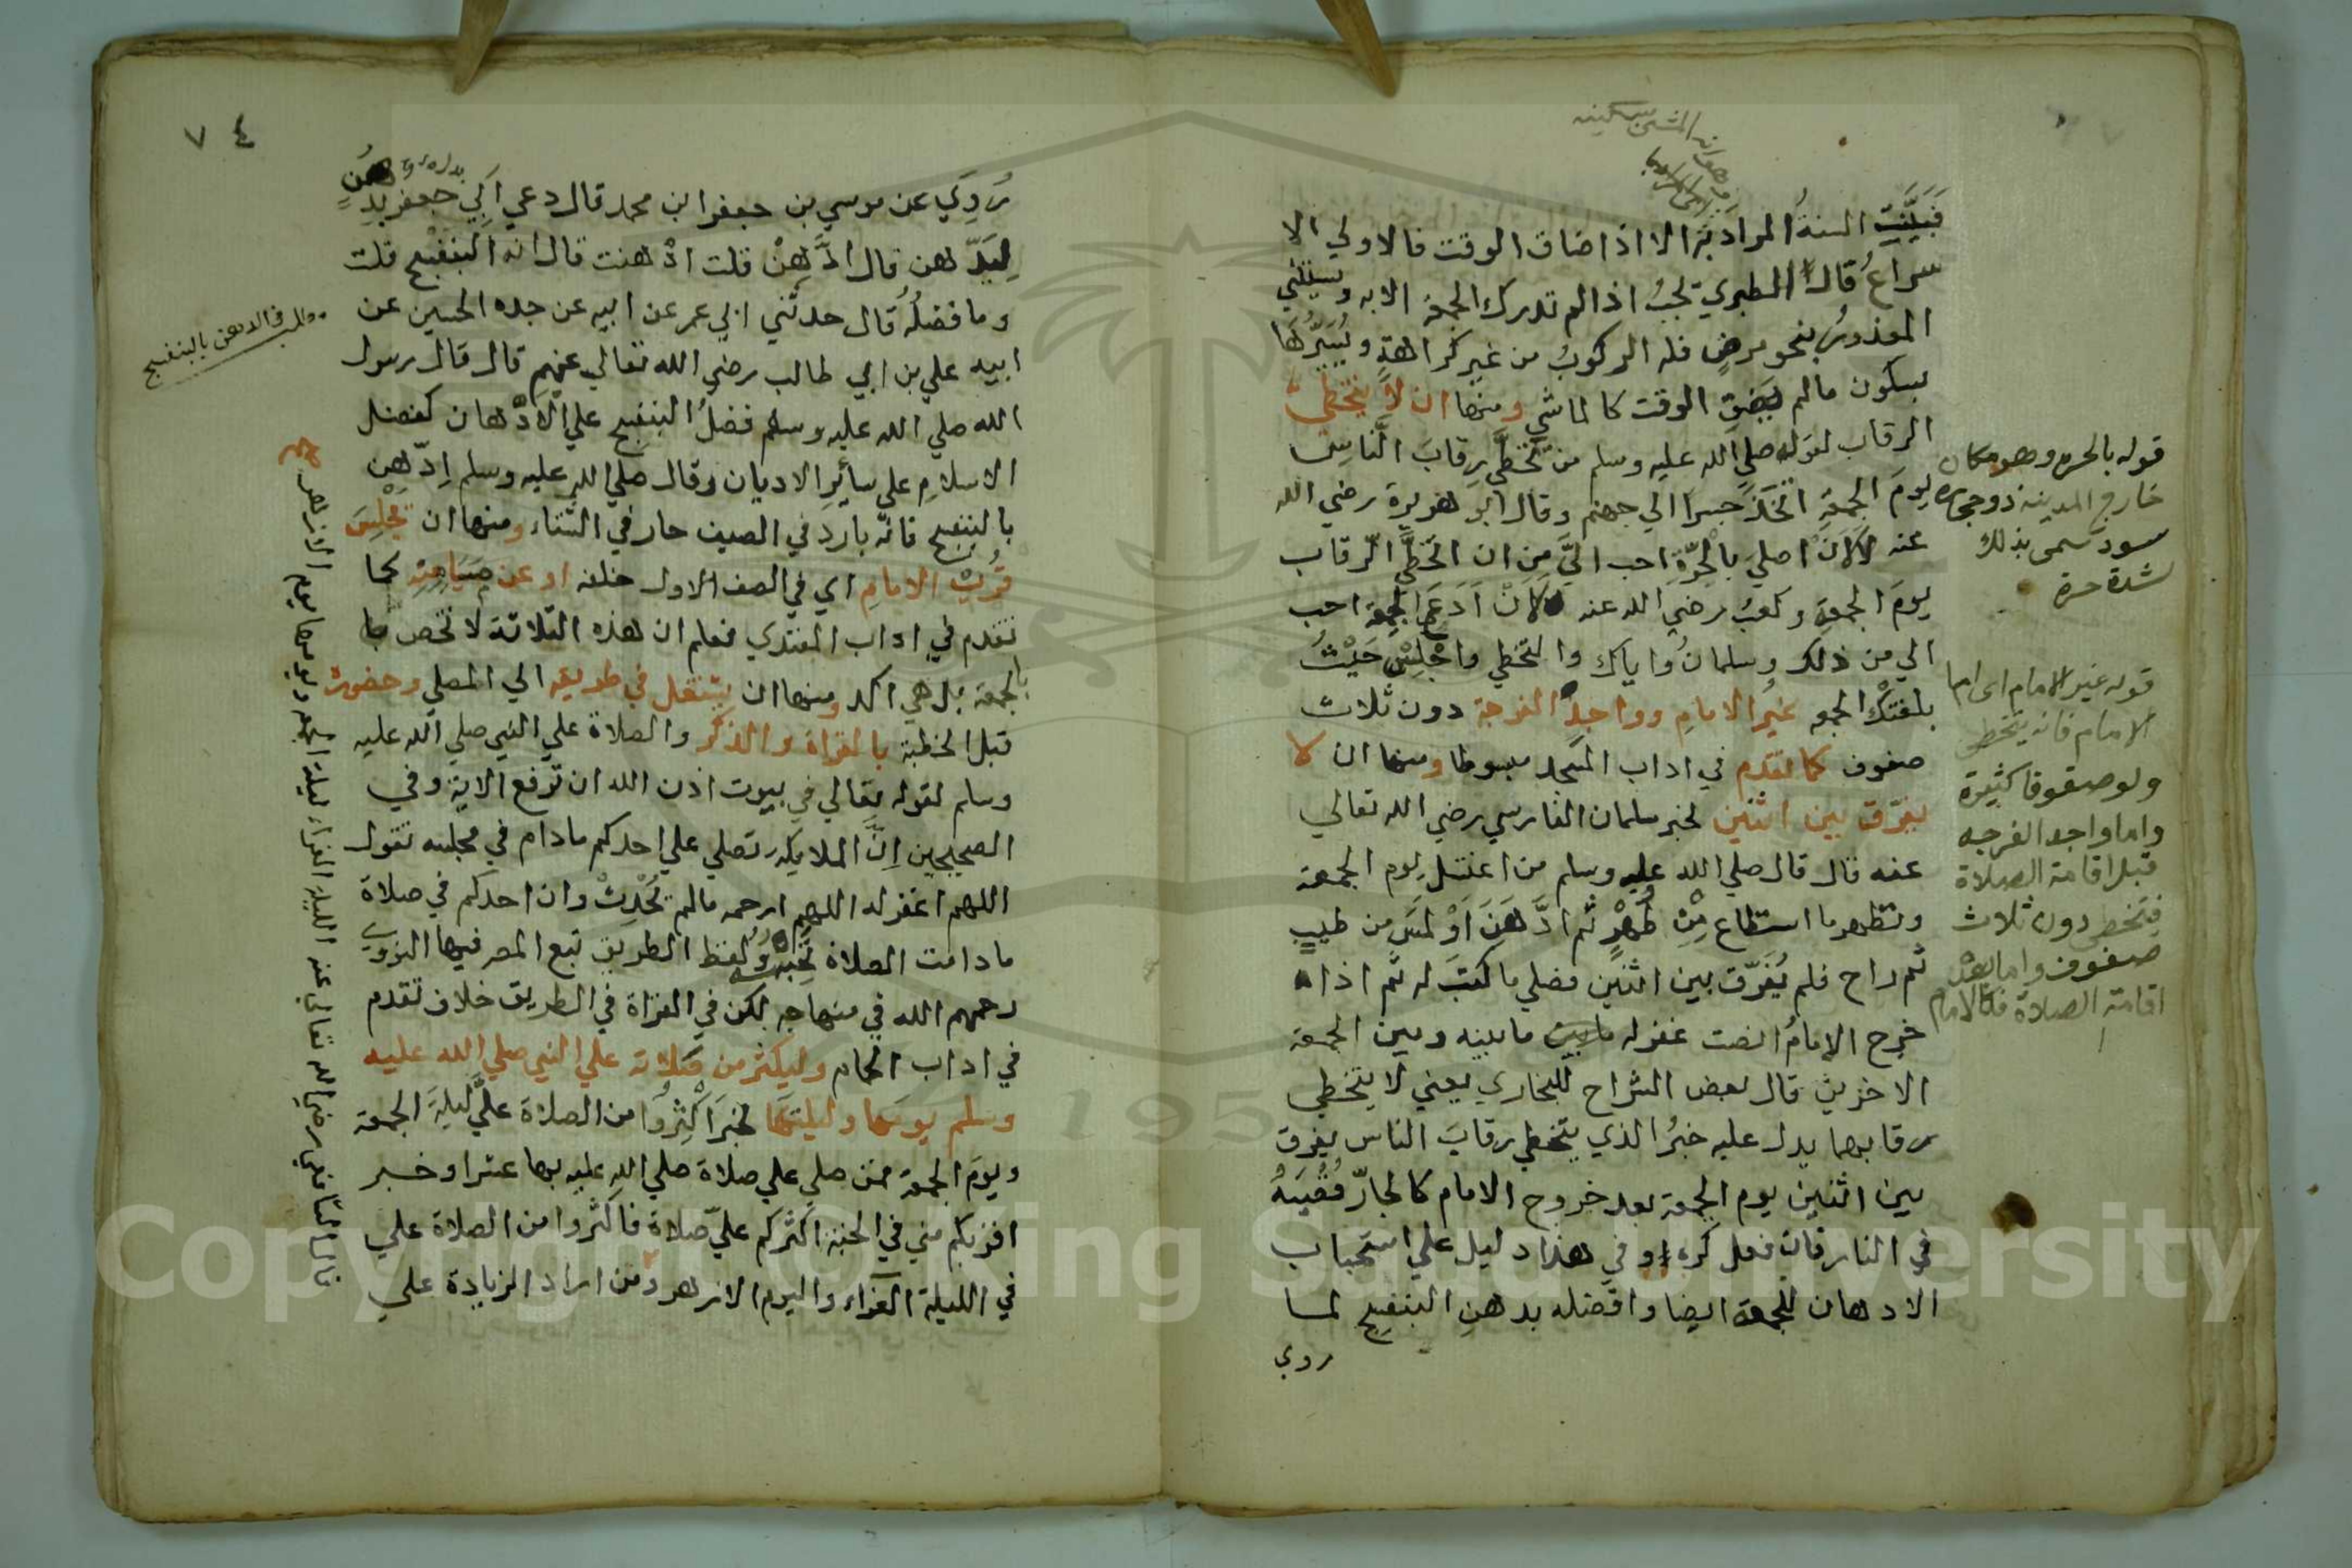 فَبَيَّنَتِ السنةُ المرادَ به الا اذا ضاق الوقت فالاولي الا
سراعُ قال الطبري يجبُ اذا لم تدرك الجمعة الا به ويستثني
المعذورُ بنحو مرضٍ فله الركوبُ من غير كراهةٍ ويُسَيِّرُها
بسكون مالم يَضِقِ الوقت كالماشي ومنها ان لا يتخطى
الرقاب لقوله صلي الله عليه وسلم من تخطَّي رقابَ الناسِ
يومَ الجمعةِ اتخذَ جسرًا الي جهنم وقال ابو هريرة رضي الله
عنه لَأَنْ اصليَ بالحَرَّةِ احب اليَّ مِن ان اتخطَّي الرقاب
يومَ الجمعةِ وكعبُ رضي الله عنه لَأَنْ اَدَعَ الجمعة احب
الي من ذلك وسلمانُ واياك والتخطي واجْلِسْ حَيْثُ
بلغتك الجمعه غيرُ الامامِ وواجدِ الفرجة دون ثلاث
صفوف كما تقدم في اداب المسجد مبسوطا ومنها ان لا
يفرّق بين اثنين لخبر سلمان الفارسي رضي الله تعالي
عنه قال قال صلي الله عليه وسلم من اغتسل يوم الجمعة
وتطهر ما استطاع مِنْ طُهْرٍ ثم ادَّهَنَ اَوْ لمَسَّ من طيبٍ
ثم راح فلم يُفَرّق بين اثنين فصلي ما كتبَ له ثم اذا
خرج الإمامُ انصت غفر له ما بينه وبين الجمعة
الاخري قال بعض الشراح للبخاري يعني لا يتخطي
رقابهما يدل عليه خبرُ الذي يتخطي رقابَ الناس يفرق
بين اثنين يوم الجمعة بعد خروج الامام كالجارّ قُصْبَهُ
في النار فان فعل كره وفي هذا دليل علي استحباب
الادهان للجمعة ايضا وافضله بدهنِ البنفسج لما
روي
قوله بالحره وهو مكان
خارج المدينة ذو حجاره
سود سمى بذلك
لشدة حره
قوله غير الامام اى اما
الامام فانه يتخطى
ولو صفوفا كثيرة
واما واجد الفرجه
قبل اقامة الصلاة
فيتخطى دون ثلاث
صفوف واما بعد
اقامة الصلاة فكالامام
٧٤
رُوِيَ عن موسي بن جعفر ابن محمد قال دعي اَبِي جعفر بدهنٍ
لِيَدَّهن قال ادَّهِنْ قلت ادّهنت قال انه البنفسج قلت
وما فضلُهُ قال حدثني ابي عمر عن ابيه عن جده الحسين عن
ابيه علي بن ابي طالب رضي الله تعالي عنهم قال قال رسول
الله صلي الله عليه وسلم فضلُ البنفسج علي الادّهان كفضل
الاسلامِ علي سائِرِ الاديان وقال صلي الله عليه وسلم اِدّهِن
بالبنفسج فانّه بارد في الصيف حار في الشتاء ومنها ان يَجْلِسَ
قُرْبَ الامامِ اي في الصف الاول خلفه او عن مَيَامِنِهِ كما
تقدم في اداب المقتدي فعلم ان هذه الثلاثة لا تخص
بالجمعة بل هي اكد ومنها ان يشتغل في طريقه الي المصلي وحضوره
قبل الخطبة بالقراة والذكر والصلاة علي النبي صلي الله عليه
وسلم لقوله تعالي في بيوت اذن الله ان ترفع الاية وفي
الصحيحين اِنَّ الملايكة تصلي علي احدكم مادام في مجلسه تقول
اللهم اغفر له اللهم ارحمه مالم يُحْدِثْ وان احدكم في صلاة
مادامت الصلاة تَحْبِسُهُ ولفظ الطريق تبع المص فيها النووي
رحمهم الله في منهاجه لكن في القراة في الطريق خلاف تقدم
في اداب الحمام وليكثر من صَلاته علي النبي صلي الله عليه
وسلم يومَها وليلتَها لخبر اَكْثِرُوا من الصلاة عليَّ ليلةَ الجمعة
ويومَ الجمعة فمن صلي علي صلاة صلي الله عليه بها عشرا وخبر
اقربكم مني في الجنة اكثركم عليّ صلاةً فاكثروا من الصلاة علي
في الليلة الغرّاء واليوم الازهر ومن اراد الزيادة علي
مطلب في الادهن بالبنفسج
قال الشافعي رضي الله تعالي عنه الليلة الغراء ليلة الجمعه ويومها يوم الازهر
Copyright © King Saud University
195